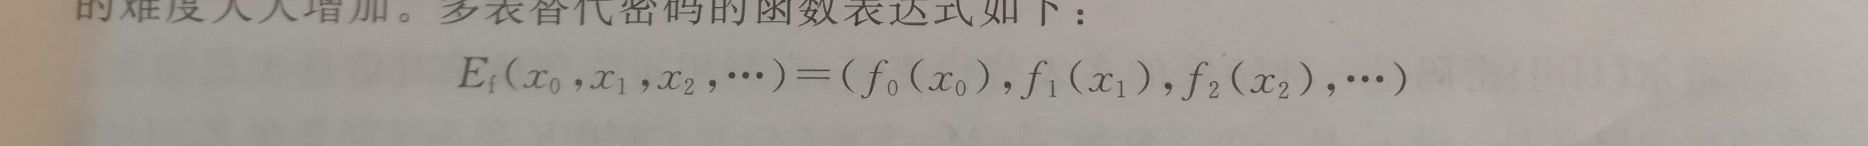 的难度大大增加。多表替代密码的函数表达式如下：
E_f(x_0,x_1,x_2,⋯)=(f_0(x_0),f_1(x_1),f_2(x_2),⋯)